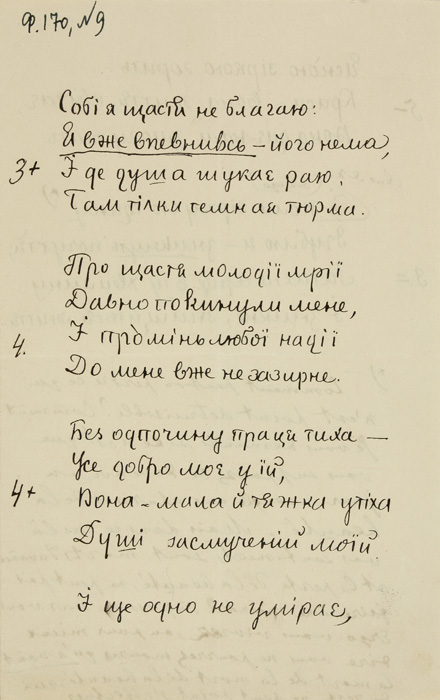 Ф. 170, №9
Собі я щастя не благаю:
Я вже впевнивсь – його нема,
3+ І де душа шукає раю,
Там тілки темная тюрма.
Про щастя молодії мрії
Давно покинули мене,
4. І промінь любої надії
До мене вже не зазирне.
Без одпочину праця тиха —
Усе добро моє у їй,
4+ Вона – мала й тяжка утіха
Душі засмученій моїй.
І ще одно не умірає,